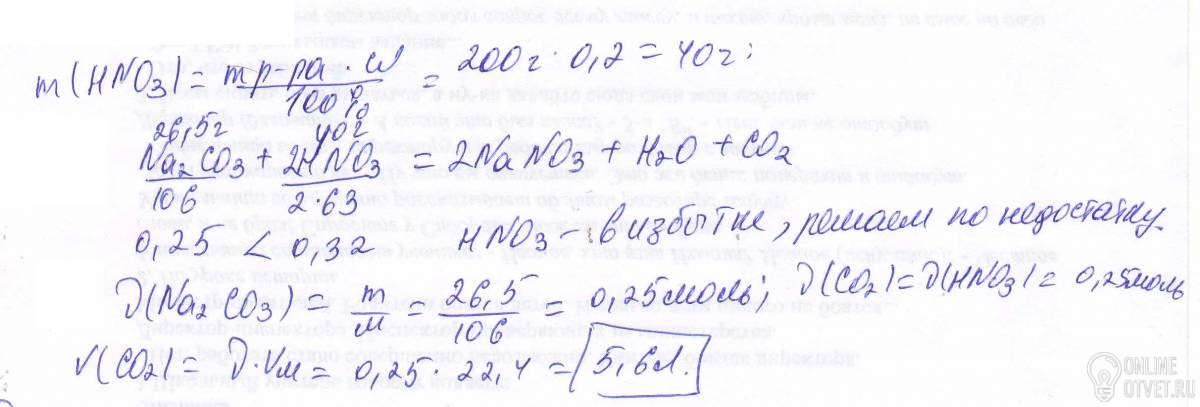 m(HNO3) = mр-ра · ω / 100% = 200г · 0,2 = 40г;
26,5г 40г
Na2CO3 + 2HNO3 = 2NaNO3 + H2O + CO2
106 2·63
0,25 < 0,32 HNO3 - в избытке, решаем по недостатку
ν(Na2CO3) = m/M = 26,5/106 = 0,25моль; ν(CO2) = ν(HNO3) = 0,25моль
V(CO2) = ν·Vм = 0,25 · 22,4 = 5,6л.
ONLINE
OTVET.RU